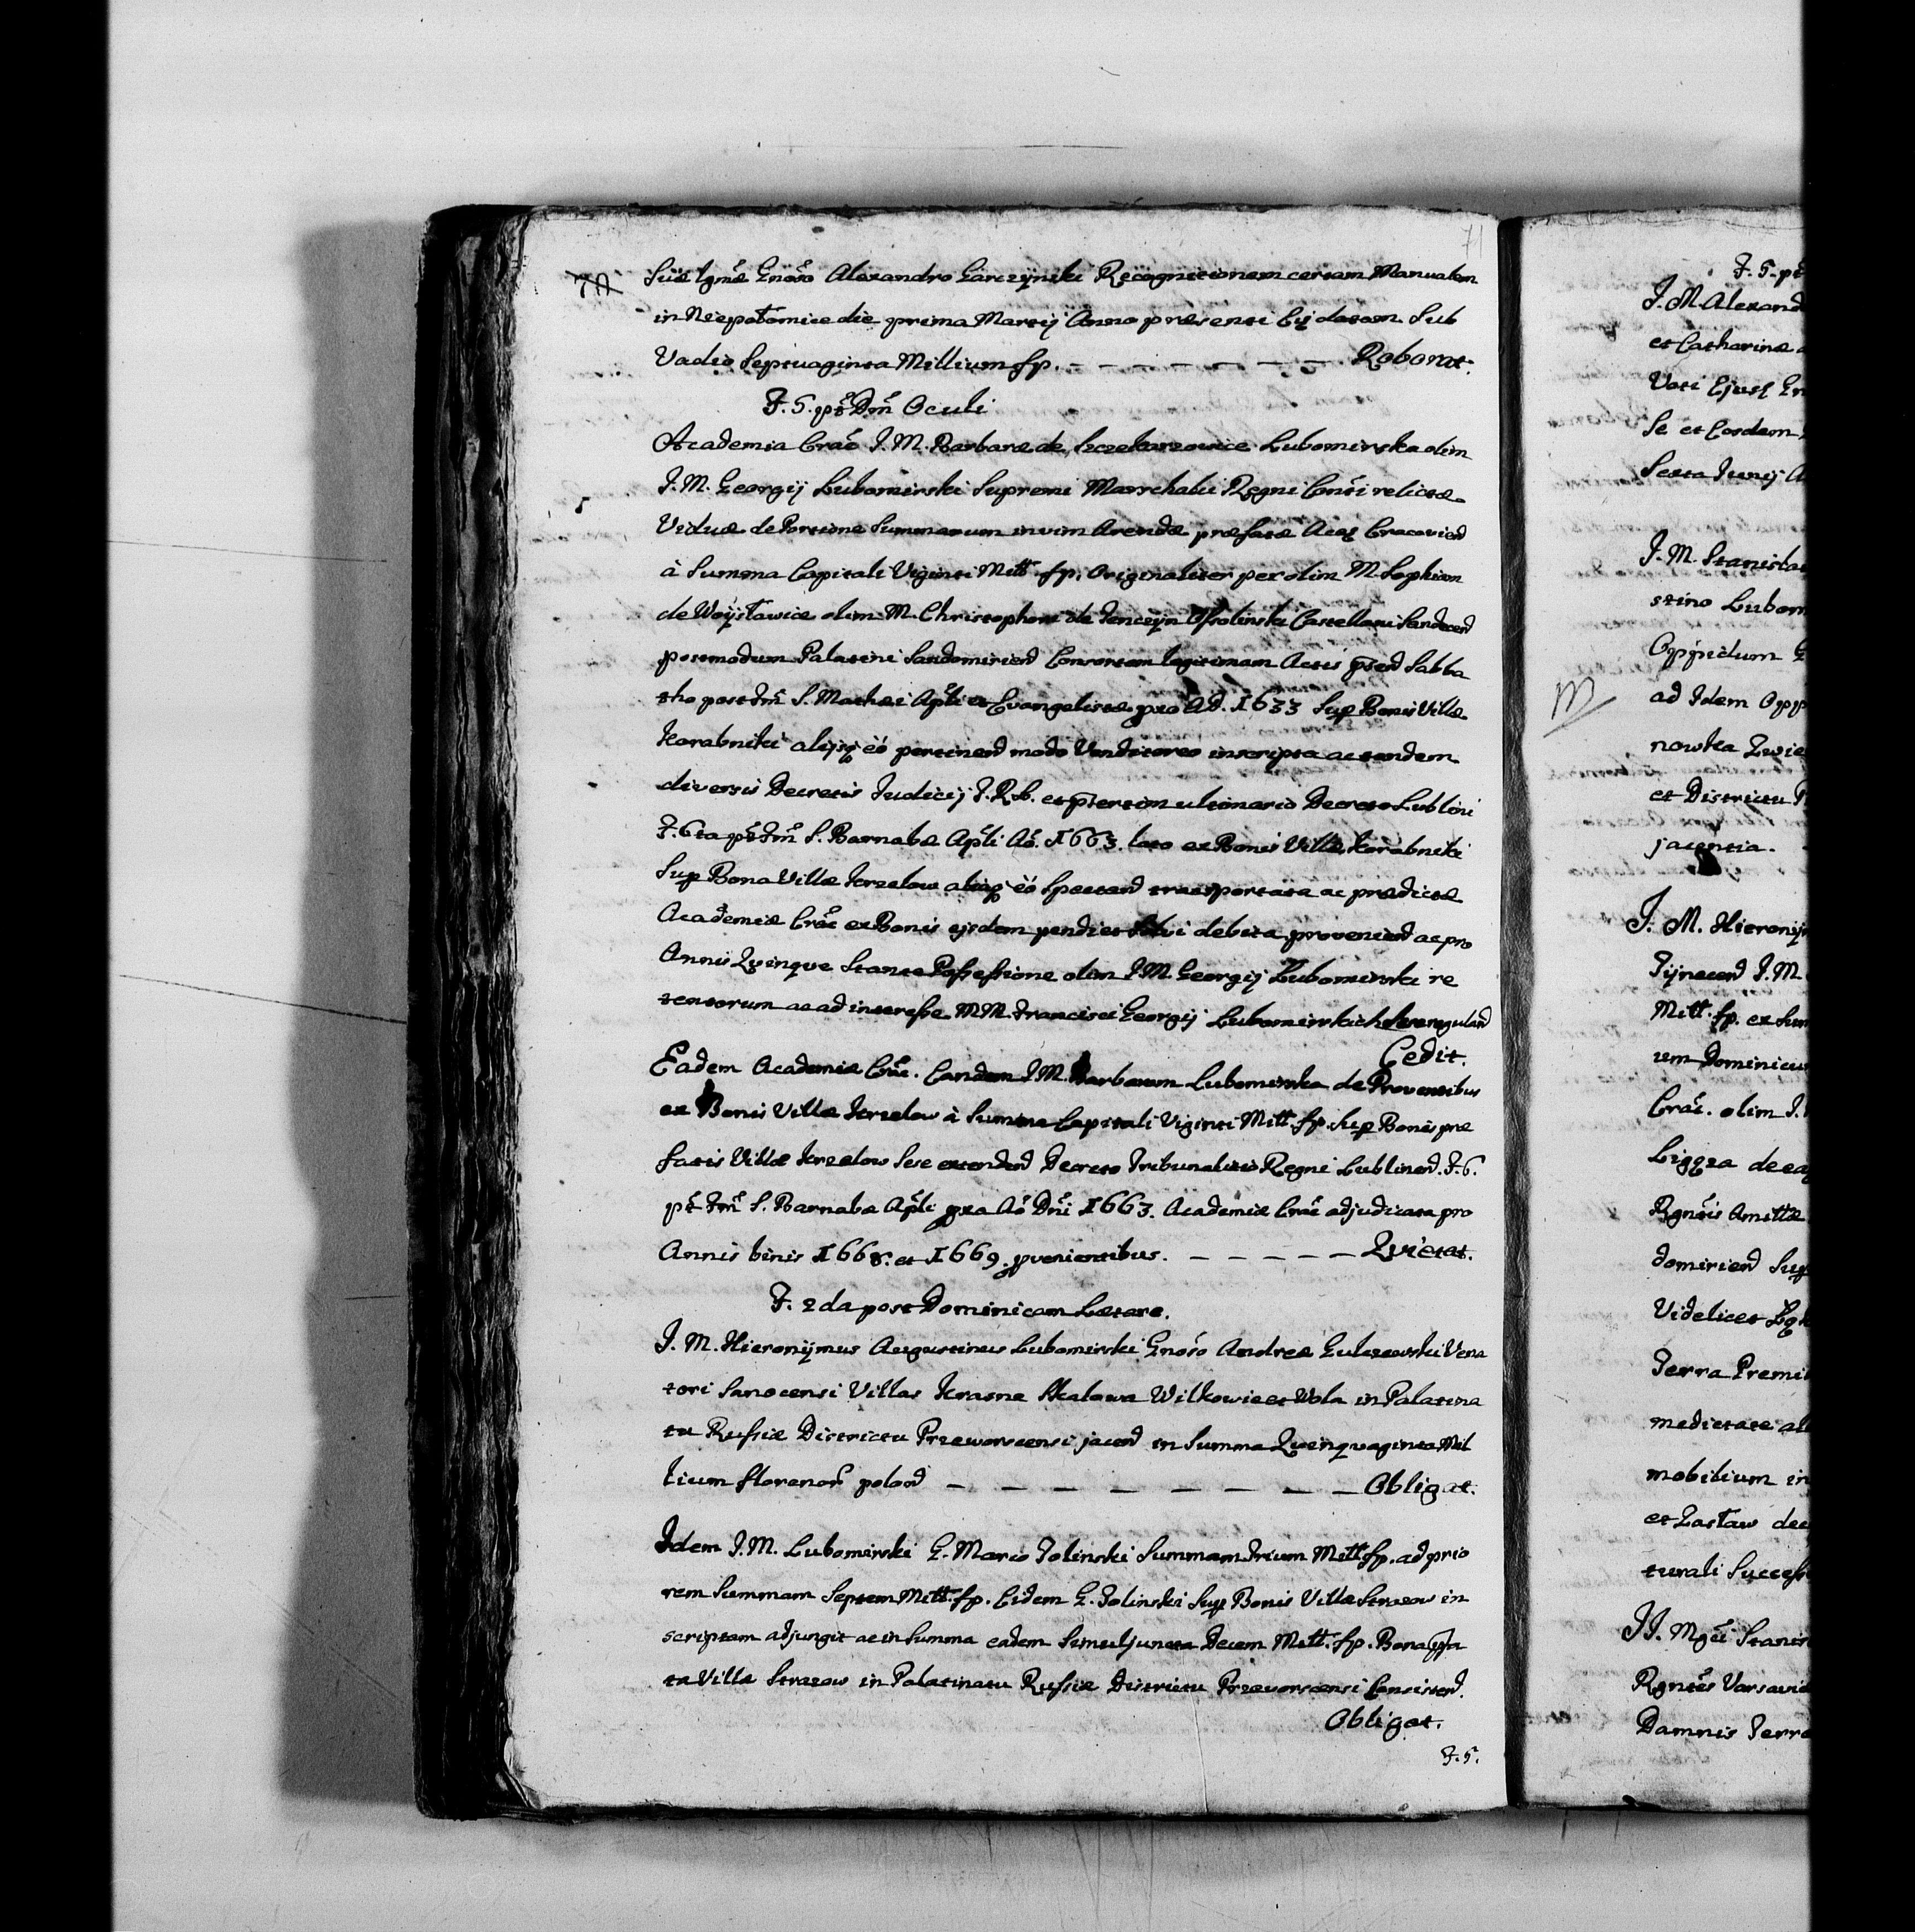 71
70
Suæ Igmæ Gnöso Alexandro Garczynski Recognitionem certam Manualem
in Niepołomice die prima Martij Anno præsenti Eij datam Sub
Vadio Septuaginta Millium fp. — — — — — — — Roborat.
F. 5. pt Dm Oculi
Academia Crac I. M. Barbaræ de Szczekarzowice Lubomirska olim
I. M. Georgij Lubomirski Supremi Marschalci Regni relictæ
Viduæ de Portione Summarum in vim Arendæ præfatæ Cracovien
à Summa Capitali Viginti Mill. fp. Originaliter per olim M. Sophiam
de Woysławice olim M. Christophori de Tenczyn Ossolinski Castellani Sandecen
postmodum Palatini Sandomirien Consortem legitimam Actis Sabba
tho post Fm S. Mathæi Apli et Evangelistæ pro AD. 1633 Sup Bonis Villæ
Korabniki alijsq eo pertinen modo Venditoreo inscripta ac tandem
diversis Decretis Iudicij T. R. L. et ptersim ultimario Decreto Lublini
F. 6ta pt Fm S. Barnabæ Apli Ao. 1663. lato ex Bonis Villæ Korabniki
Sup Bona Villæ Krzelow aliaq eo Spectan transportata ac prædictæ
Academiæ Crac ex Bonis ejsdem pendi et Solvi debita provenien ac pro
Annis Qvinqve Stante Possessione olim I. M. Georgij Lubomirski re
tentorum ac ad interesse M M. Francisci Georgij Lubomirskich
Cedit.
Eadem Academia Crac. Eandem I M. Barbaram Lubomirska de Proventibus
ex Bonis Villæ Krzelow à Summa Capitali Viginti Mill. fp. Sup Bonis præ
fatis Villæ Krzelow Sese extenden Decreto Tribunalitio Regni Lublinen. F. 6.
pt Fm S. Barnabæ Apli pra Ao Dni 1663. Academiæ Crac adjudicata pro
Annis binis 1668. et 1669. pvenientibus. — — — — — Qvietat.
F. 2da post Dominicam Lætare.
I. M. Hieronijmus Augustinus Lubomirski Gnöso Andreæ Gulczewski Vena
tori Sanocensi Villas Krasne Malawa Wilkowie et Wola in Palatina
tu Russiæ Districtu Przeworscensi jacen in Summa Qvinqvaginta Mil
lium florenor polon — — — — — — — — Obligat.
Idem I. M. Lubomirski G. Marco Tolinski Summam Trium Mill fp. ad prio
rem Summam Septem Mill. fp. Eidem G. Tolinski Sup Bonis Villæ Strazow in
scriptam adjungit ac in Summa eadem Simul juncta Decem Mill. fp. Bona
ta Villæ Strazow in Palatinatu Russiæ Districtu Przeworscensi Consisten.
Obligat.
F. 5.
F. 5. pt
I. M. Alexand
et Catharinæ
Voti Ejusq Gn
Se et Eosdem
Sexta Junij A
I. M. Stanisla
stino Lubom
Oppidum
M
ad Idem Opp
nowka Zwie
et Districtu
jacentia.
I. M. Hieronij
Tijnecen I. M.
Mill. fp. ex Sum
um Dominicu
Crac. olim I.
Ligęza de ea
Rgntis Amillæ
domirien Sup
Videlicet
Terra Premi
medietate al
mobilium in
et Zasław
turali Success
II. Mgci Stanis
Rgntes Varsavi
Damnis Terre